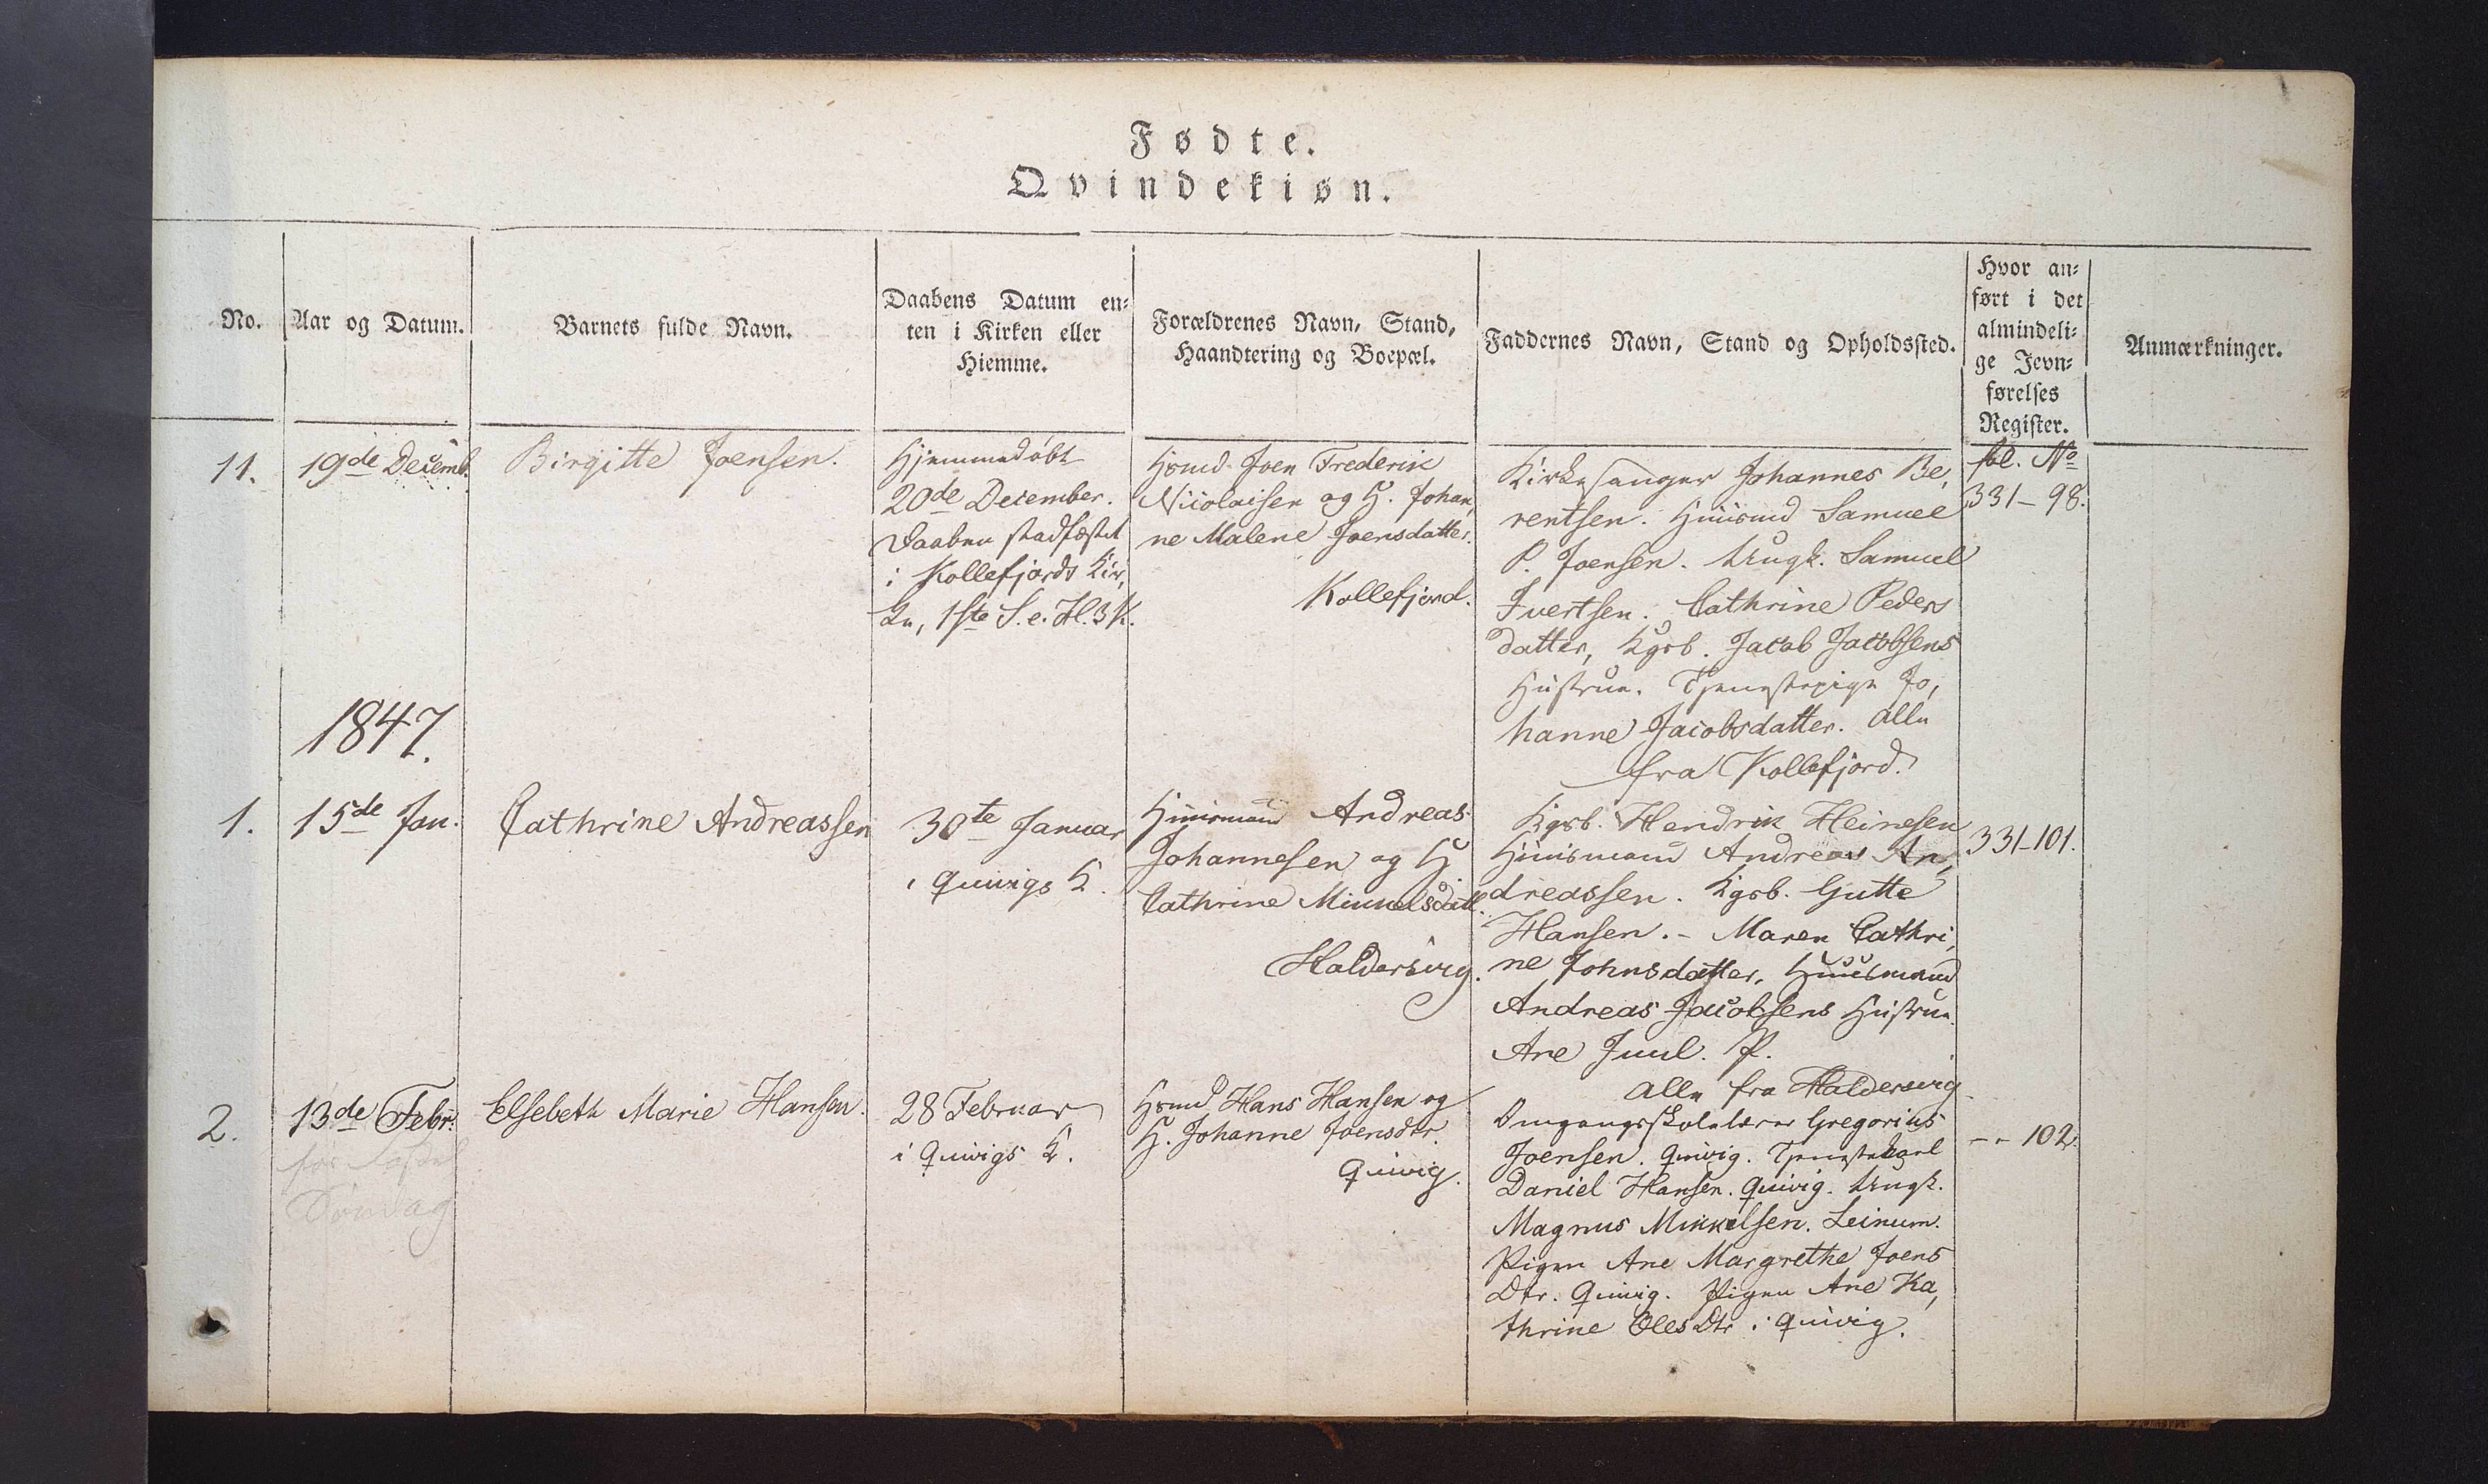 Fødte.
Qvindekiøn.
No.
Aar og Datum.
Barnets fulde Navn.
Daabens Datum en-
ten i Kirken eller
Hiemme.
Forældrenes Navn, Stand,
Haandtering og Boepæl.
Faddernes Navn, Stand og Opholdssted.
Hvor an-
ført i det
almindeli-
ge Jevn-
førelses
Register.
Anmærkninger.
11.
19de Decemb.
Birgitte Joensen.
Hjemmedøbt
20de December.
Daaben stadfæstet
i Kollefjords Kir,
ke, 1ste S. e. H. 3 K.
Hsmd Joen Frederik
Nicolaisen og H. Johan,
ne Malene Joensdatter.
Kollefjord.
Kirkesanger Johannes Be,
rentsen. Huusmd Samuel
P. Joensen. Ungk. Samuel
Ivertsen. Cathrine Peders
datter, Kgsb. Jacob Jacobsens
Hustrue. Tjenestepige Jo,
hanne Jacobsdatter. Alle
fra Kollefjord.
fol. No
331-98.
1847.
1.
15de Jan.
Cathrine Andreassen
30te Januar
i Quivigs K.
Huusmand Andreas
Johannesen og H
Cathrine Mikkelsdatt.
Haldersvig.
Kgsb. Hendrik Heinesen
Huusmand Andreas An,
dreassen. Kgsb. Gutte
Hansen. - Maren Cathri,
ne Johnsdatter, Huusmand
Andreas Jacobsens Hustrue.
Ane Juul. P.
Alle fra Haldersvig.
331-101.
2.
13de Febr.
Søndag
Elsebeth Marie Hansen.
28 Februar
i Quivigs K.
Hsmd Hans Hansen og
H. Johanne Joensdtr.
Quivig.
Omgangsskolelærer Gregorius
Joensen. Quivig. Tjenestekarl
Daniel Hansen. Quivig. Ungk.
Magnus Mikkelsen. Leinum.
Pigen Ane Margrethe Joens
Dtr. Quivig. Pigen Ane Ka,
thrine Oles Dtr i Quivig.
-- 102.